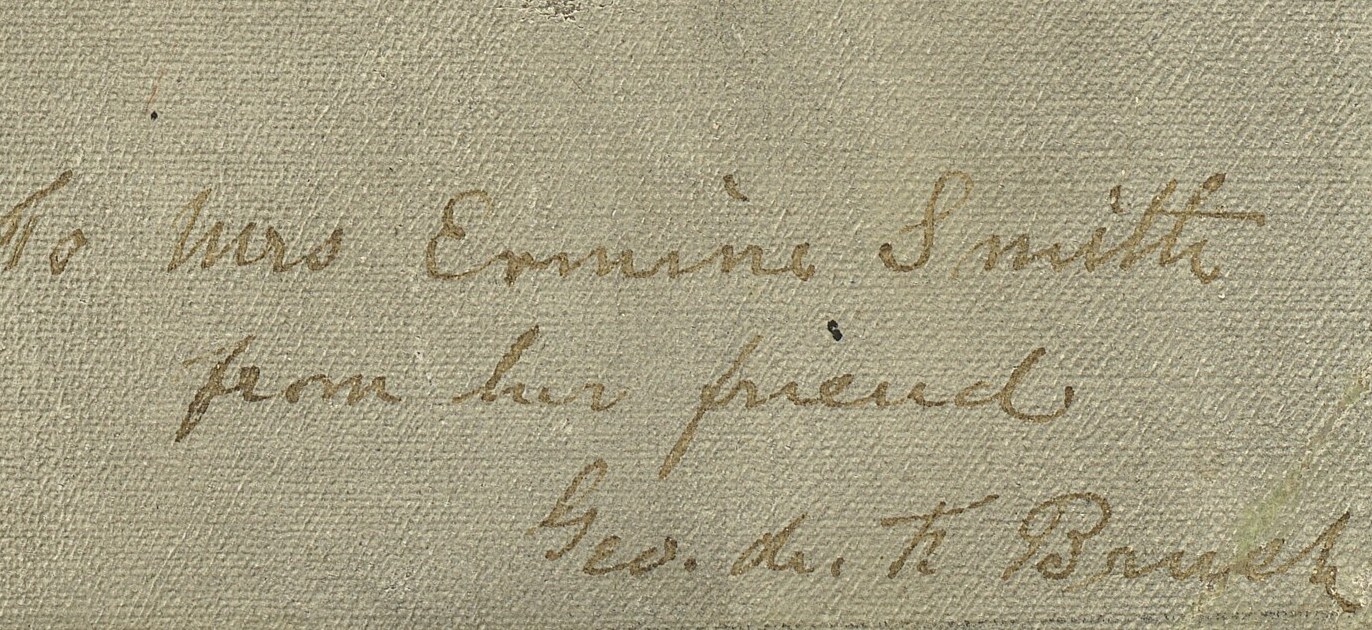 To Mrs Ermine Smith
from her friend
Geo. de. F. Brush